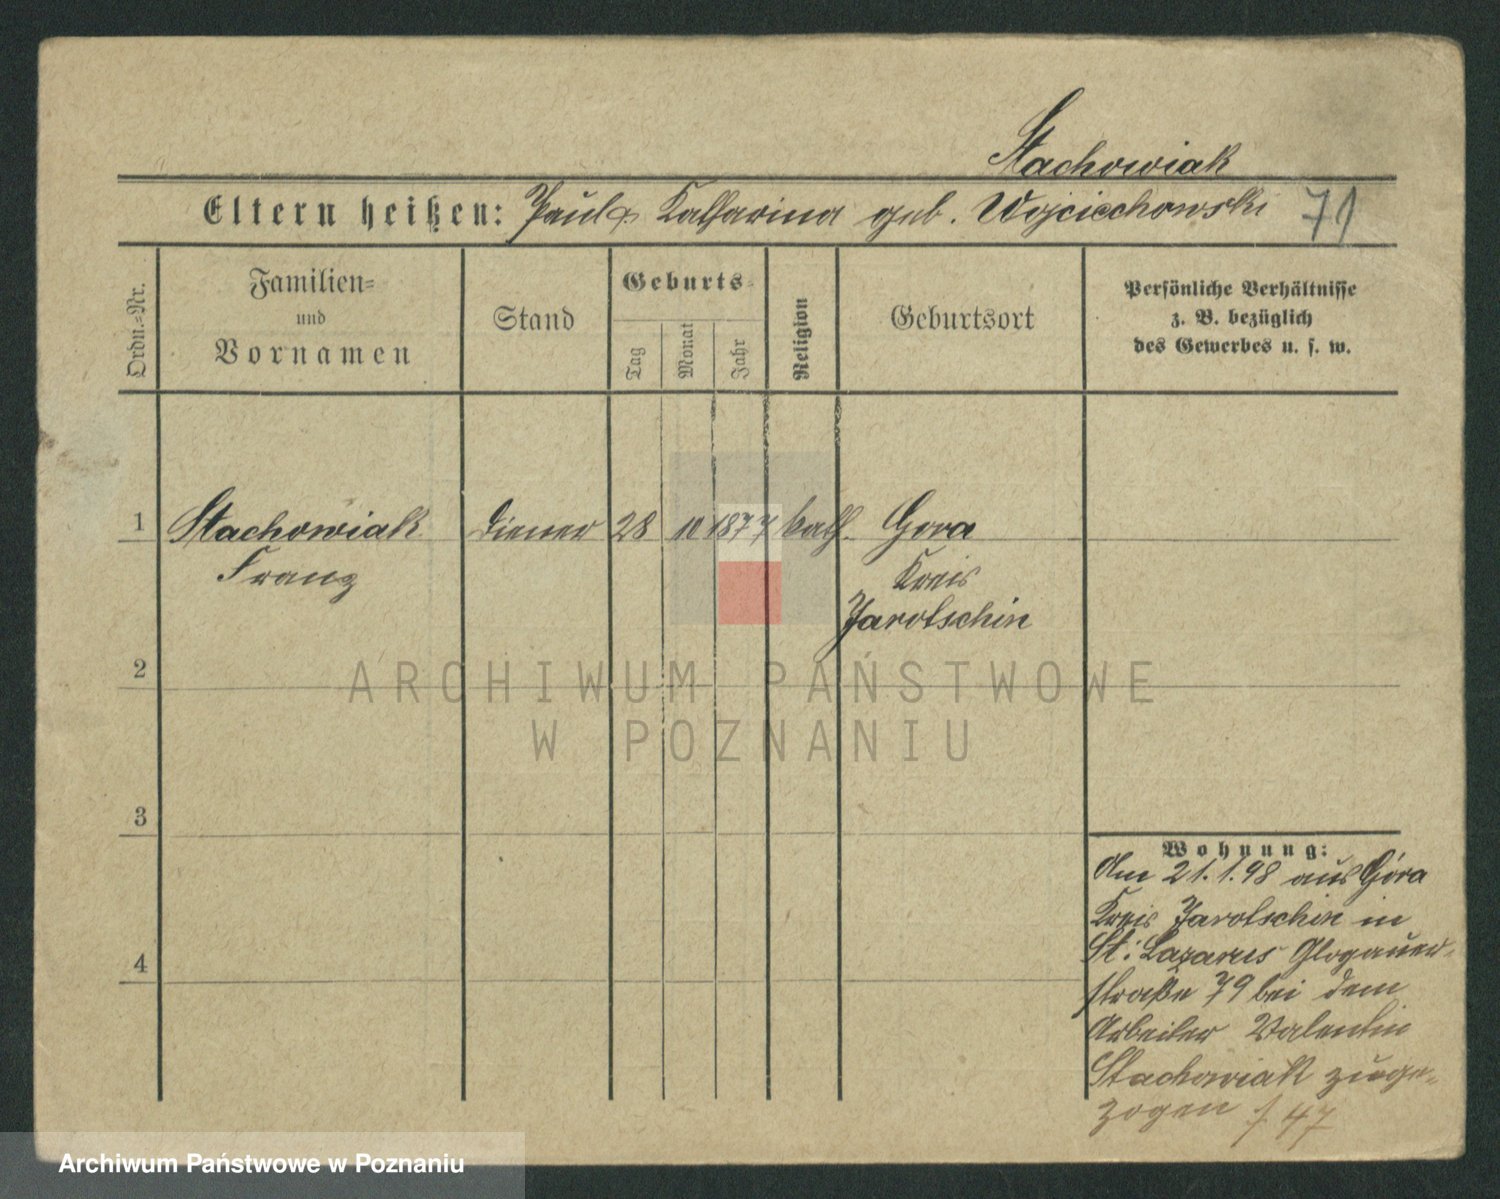 Stachowiak
Eltern heißen: Paul & Katharina geb. Wojciechowski 71
Ordn.-Nr.
Familien-
und
Vornamen
Stand
Geburts-
Tag
Monat
Jahr
Religion
Geburtsort
Persönliche Verhältnisse
z. B. bezüglich
des Gewerbes u. s. w.
1 Stachowiak Diener 28 10 1877 kath. Gora
Franz Kreis
Jarotschin
2
ARCHIWUM PAŃSTWOWE
W POZNANIU
3
Wohnung:
Am 21.1.98 aus Góra
Kreis Jarotschin in
St. Lazarus Glogauer-
4
straße 79 bei dem
Arbeiter Valentin
Stachowiak zuge-
zogen f. 47
Archiwum Państwowe w Poznaniu